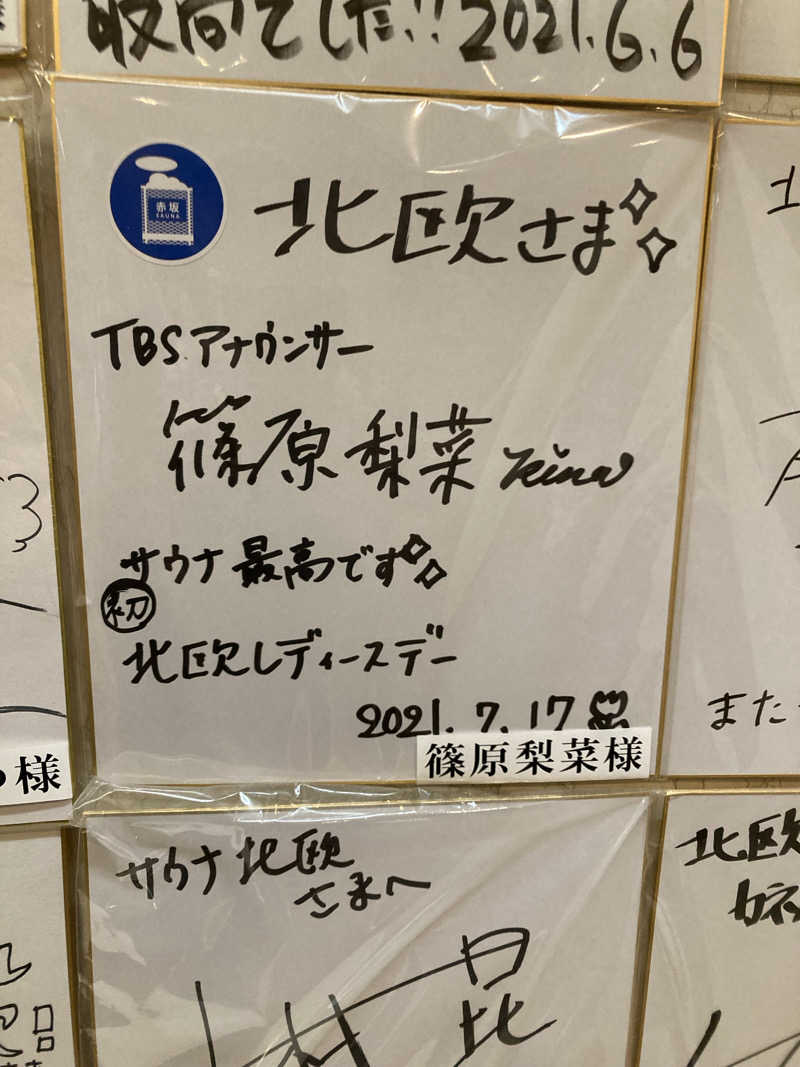 取向でした!! 2021.6.6
赤坂
SAUNA
北欧さま
TBSアナウンサー
篠原梨菜 Rina
サウナ最高です
初
北欧レディースデー
2021.7.17
篠原梨菜様
様
また
サウナ北欧
さまへ
北欧
カネ
品